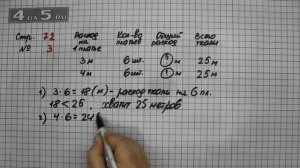 4DA5.RU
Стр. 72
№ 3
Расход на 1 платье Кол-во платьев Общий расход Всего ткани
3 м 6 шт. ? м 25 м
4 м 6 шт. ? м 25 м
1) 3·6=18(м) – расход ткани на 6 пл.
18 < 25, хватит 25 метров
2) 4·6=24